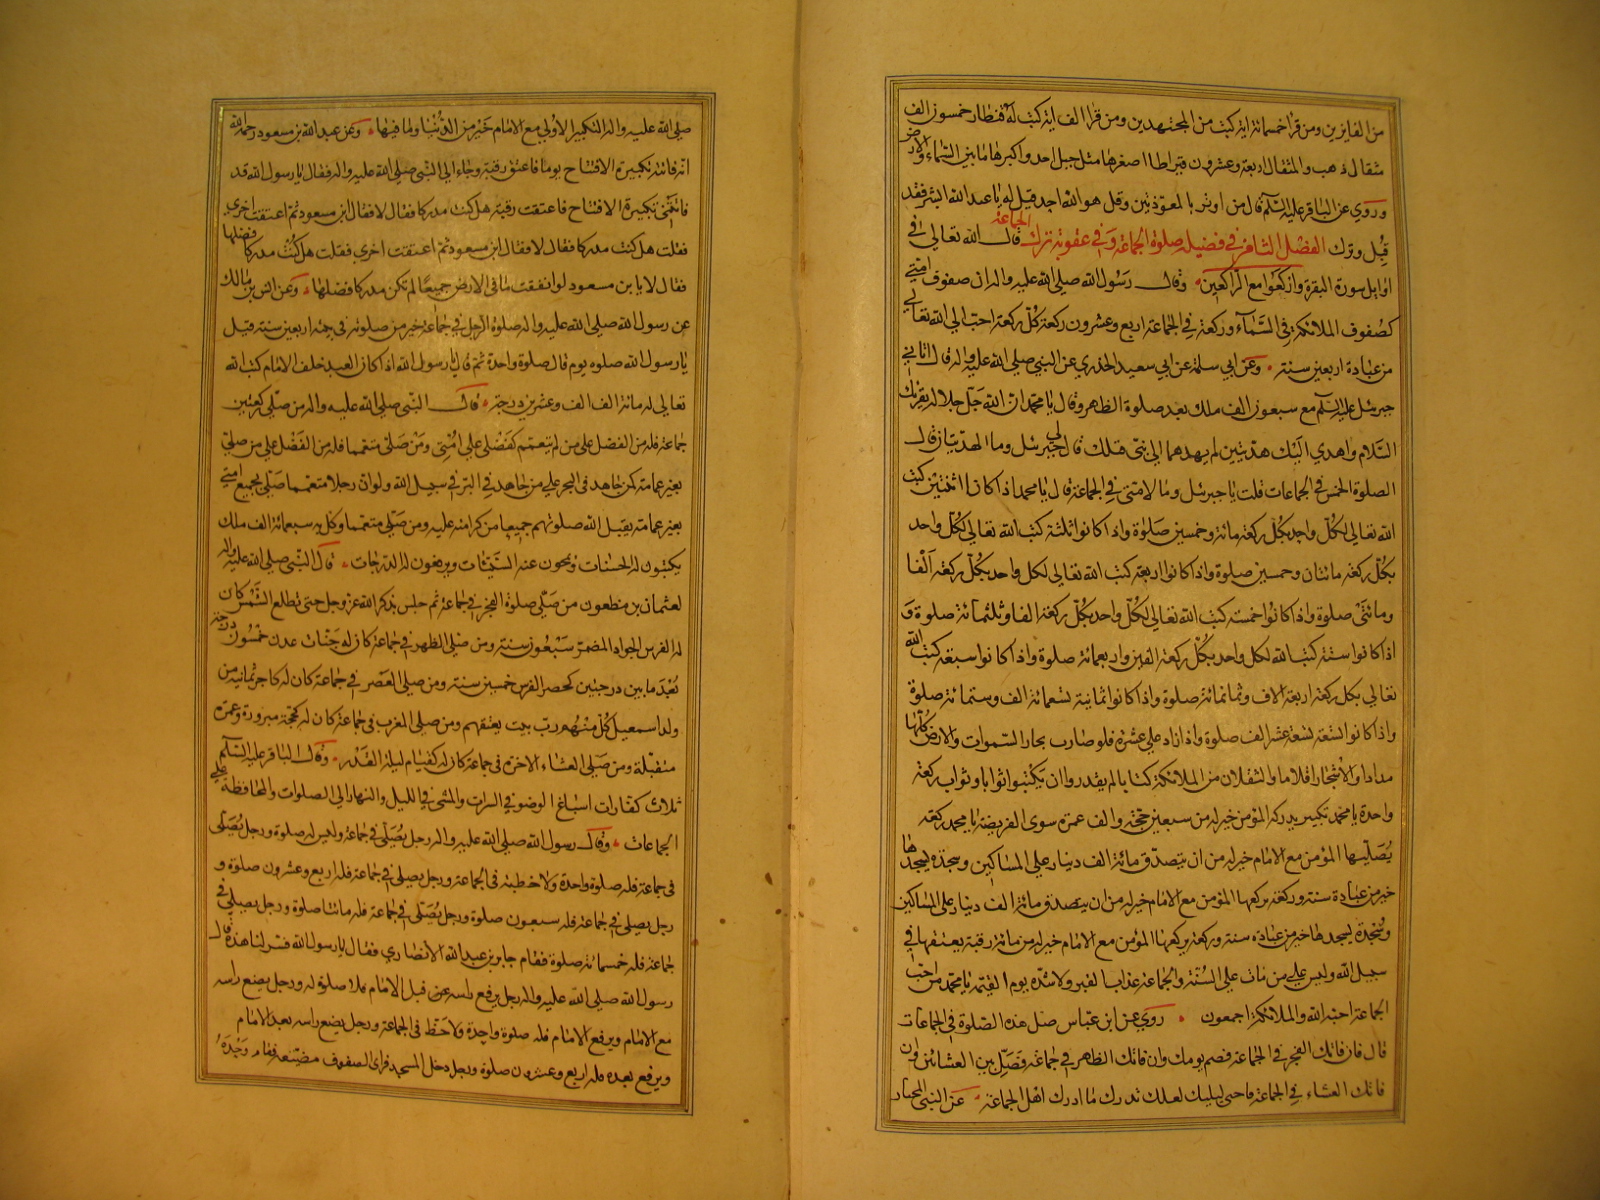 من الفايزين ومن قرا خمسمائة اية كتبت من المجتهدين ومن قرا الف اية كتب له قنطار خمسون الف
مثقال ذهب والمثقال اربعة وعشرون قيراطا اصغرها مثل جبل احد واكبرها ما بين السماء والارض
وروي عن الباقر عليه السلم قال من اوتر بالمعوذتين وقل هو الله احد قيل له يا عبد الله ابشر فقد
قبل وترك الفصل الثامن في فضيلة صلوة الجماعة وفي عقوبة ترك الجماعة قال الله تعالى في
اوايل سورة البقرة واركعوا مع الراكعين وقال رسول الله صلى الله عليه واله ان صفوف امتي
كصفوف الملائكة في السماء وركعة في الجماعة اربع وعشرون ركعة كل ركعة احب الى الله تعالى
من عبادة اربعين سنة وعن ابي سلمة عن ابي سعيد الخدري عن النبي صلى الله عليه واله قال اتاني
جبرئيل عليه السلم مع سبعون الف ملك بعد صلوة الظهر وقال يا محمد ان الله جل جلاله يقرئك
السلام واهدي اليك هديتين لم يهدهما الى نبي قبلك قال لي جبرئيل وما الهديتان قال
الصلوة الخمس في الجماعات قلت يا جبرئيل وما لامتي في الجماعة قال يا محمد اذا كانا اثنين كتب
الله تعالى لكل واحد بكل ركعة مائة وخمسين صلوة واذا كانوا ثلثة كتب الله تعالى لكل واحد
بكل ركعة مائتان وخمسين صلوة واذا كانوا اربعة كتب الله تعالى لكل واحد بكل ركعة الفا
ومائتي صلوة واذا كانوا خمسة كتب الله تعالى لكل واحد بكل ركعة الفا وثلثمائة صلوة و
اذا كانوا ستة كتب الله لكل واحد بكل ركعة الفين واربعمائة صلوة واذا كانوا سبعة كتب الله
تعالى بكل ركعة اربعة الاف وثمانمائة صلوة واذا كانوا ثمانية تسعمائة الف وستمائة صلوة
واذا كانوا تسعة تسعة عشر الف صلوة واذا زاد على عشرة فلو صارت بحار السموات والارض كلها
مدادا والاشجار اقلاما والثقلان من الملائكة كتابا لم يقدروا ان يكتبوا ثوابا وثواب ركعة
واحدة يا محمد تكبير يدركه المؤمن خير له من سبعين حجة والف عمرة سوى الفريضة يا محمد ركعة
يصليها المؤمن مع الامام خير له من ان يتصدق مائة الف دينار على المساكين وسجدة يسجدها
خير من عبادة سنة وركعة يركعها المؤمن مع الامام خير له من ان يتصدق مائة الف دينار على المساكين
وسجدة يسجدها خير من عبادة سنة وركعة يركعها المؤمن مع الامام خير له من مائة رقبة يعتقها في
سبيل الله وليس على من مات على السنة والجماعة عذاب القبر ولا شدة يوم القيمة يا محمد من احب
الجماعة احبه الله والملائكة اجمعون روي عن ابن عباس صل هذه الصلوة في الجماعات
قال فان فاتك الفجر في الجماعة فصم يومك وان فاتك الظهر في جماعة فصل بين العشائين وان
فاتك العشاء في الجماعة فاحي ليلتك لعلك تدرك ما ادرك اهل الجماعة عن النبي المختار
صلى الله عليه واله التكبير الاولى مع الامام خير من الدنيا وما فيها وعن عبد الله بن مسعود رحمه الله
انه فاته تكبيرة الافتتاح يوما فاعتق رقبة وجاء الى النبي صلى الله عليه واله فقال يا رسول الله قد
فاتتني تكبيرة الافتتاح فاعتقت رقبة هل كنت مدركا فقال لا فقال ابن مسعود ثم اعتقت اخرى
فقلت هل كنت مدركا فقال لا فقال ابن مسعود ثم اعتقت اخرى فقلت هل كنت مدركا فضلها
فقال لا يا بن مسعود لو انفقت ما في الارض جميعا لم تكن مدركا فضلها وعن انس بن مالك
عن رسول الله صلى الله عليه واله صلوة الرجل في جماعة خير من صلوته في بيته اربعين سنة قيل
يا رسول الله صلوة يوم قال صلوة واحدة ثم قال يا رسول الله اذا كان العبد خلف الامام كتب الله
تعالى له مائة الف الف وعشرين درجة قال النبي صلى الله عليه واله من صلى ركعتين
جماعة فله من الفضل على من لم يتعمم كفضلي على امتي ومن صلى متعمما فله من الفضل على من صلى
بغير عمامة كمن جاهد في البحر على من جاهد في البر في سبيل الله ولو ان رجلا متعمما صلى بجميع امتي
بغير عمامة يقبل الله صلوتهم جميعا من كرامته عليه ومن صلى متعمما وكل به سبعمائة الف ملك
يكتبون له الحسنات ويمحون عنه السيئات ويرفعون له الدرجات قال النبي صلى الله عليه واله
لعثمان بن مظعون من صلى صلوة الفجر في جماعة ثم جلس يذكر الله عز وجل حتى تطلع الشمس كان
له الفرس الجواد المضمر سبعون سنة ومن صلى الظهر في جماعة كان له جنات عدن خمسون درجة
بعد ما بين درجتين كحضر الفرس خمسين سنة ومن صلى العصر في جماعة كان له كاجر ثمانية من
ولد اسمعيل كل منهم رب بيت يعتقهم ومن صلى المغرب في جماعة كان له كحجة مبرورة وعمرة
متقبلة ومن صلى العشاء الاخرة في جماعة كان له كقيام ليلة القدر وقال الباقر عليه السلم
ثلاث كفارات اسباغ الوضوء في السبرات والمشي في الليل والنهار الى الصلوات والمحافظة على
الجماعات وقال رسول الله صلى الله عليه واله رجل يصلي في جماعة وليس له صلوة ورجل يصلي
في جماعة فله صلوة واحدة ولا حظ له في الجماعة ورجل يصلي في جماعة فله اربع وعشرون صلوة و
رجل يصلي في جماعة فله سبعون صلوة ورجل يصلي في جماعة فله مائتا صلوة ورجل يصلي في
جماعة فله خمسمائة صلوة فقام جابر بن عبد الله الانصاري فقال يا رسول الله فسر لنا هذه قال
رسول الله صلى الله عليه واله رجل يرفع راسه عن قبل الامام فلا صلوة له ورجل يضع راسه
مع الامام ويرفع الامام فله صلوة واحدة ولا حظ في الجماعة ورجل يضع راسه بعد الامام
ويرفع بعده فله اربع وعشرون صلوة ورجل دخل المسجد فراى الصفوف مضيقة فقام وحده